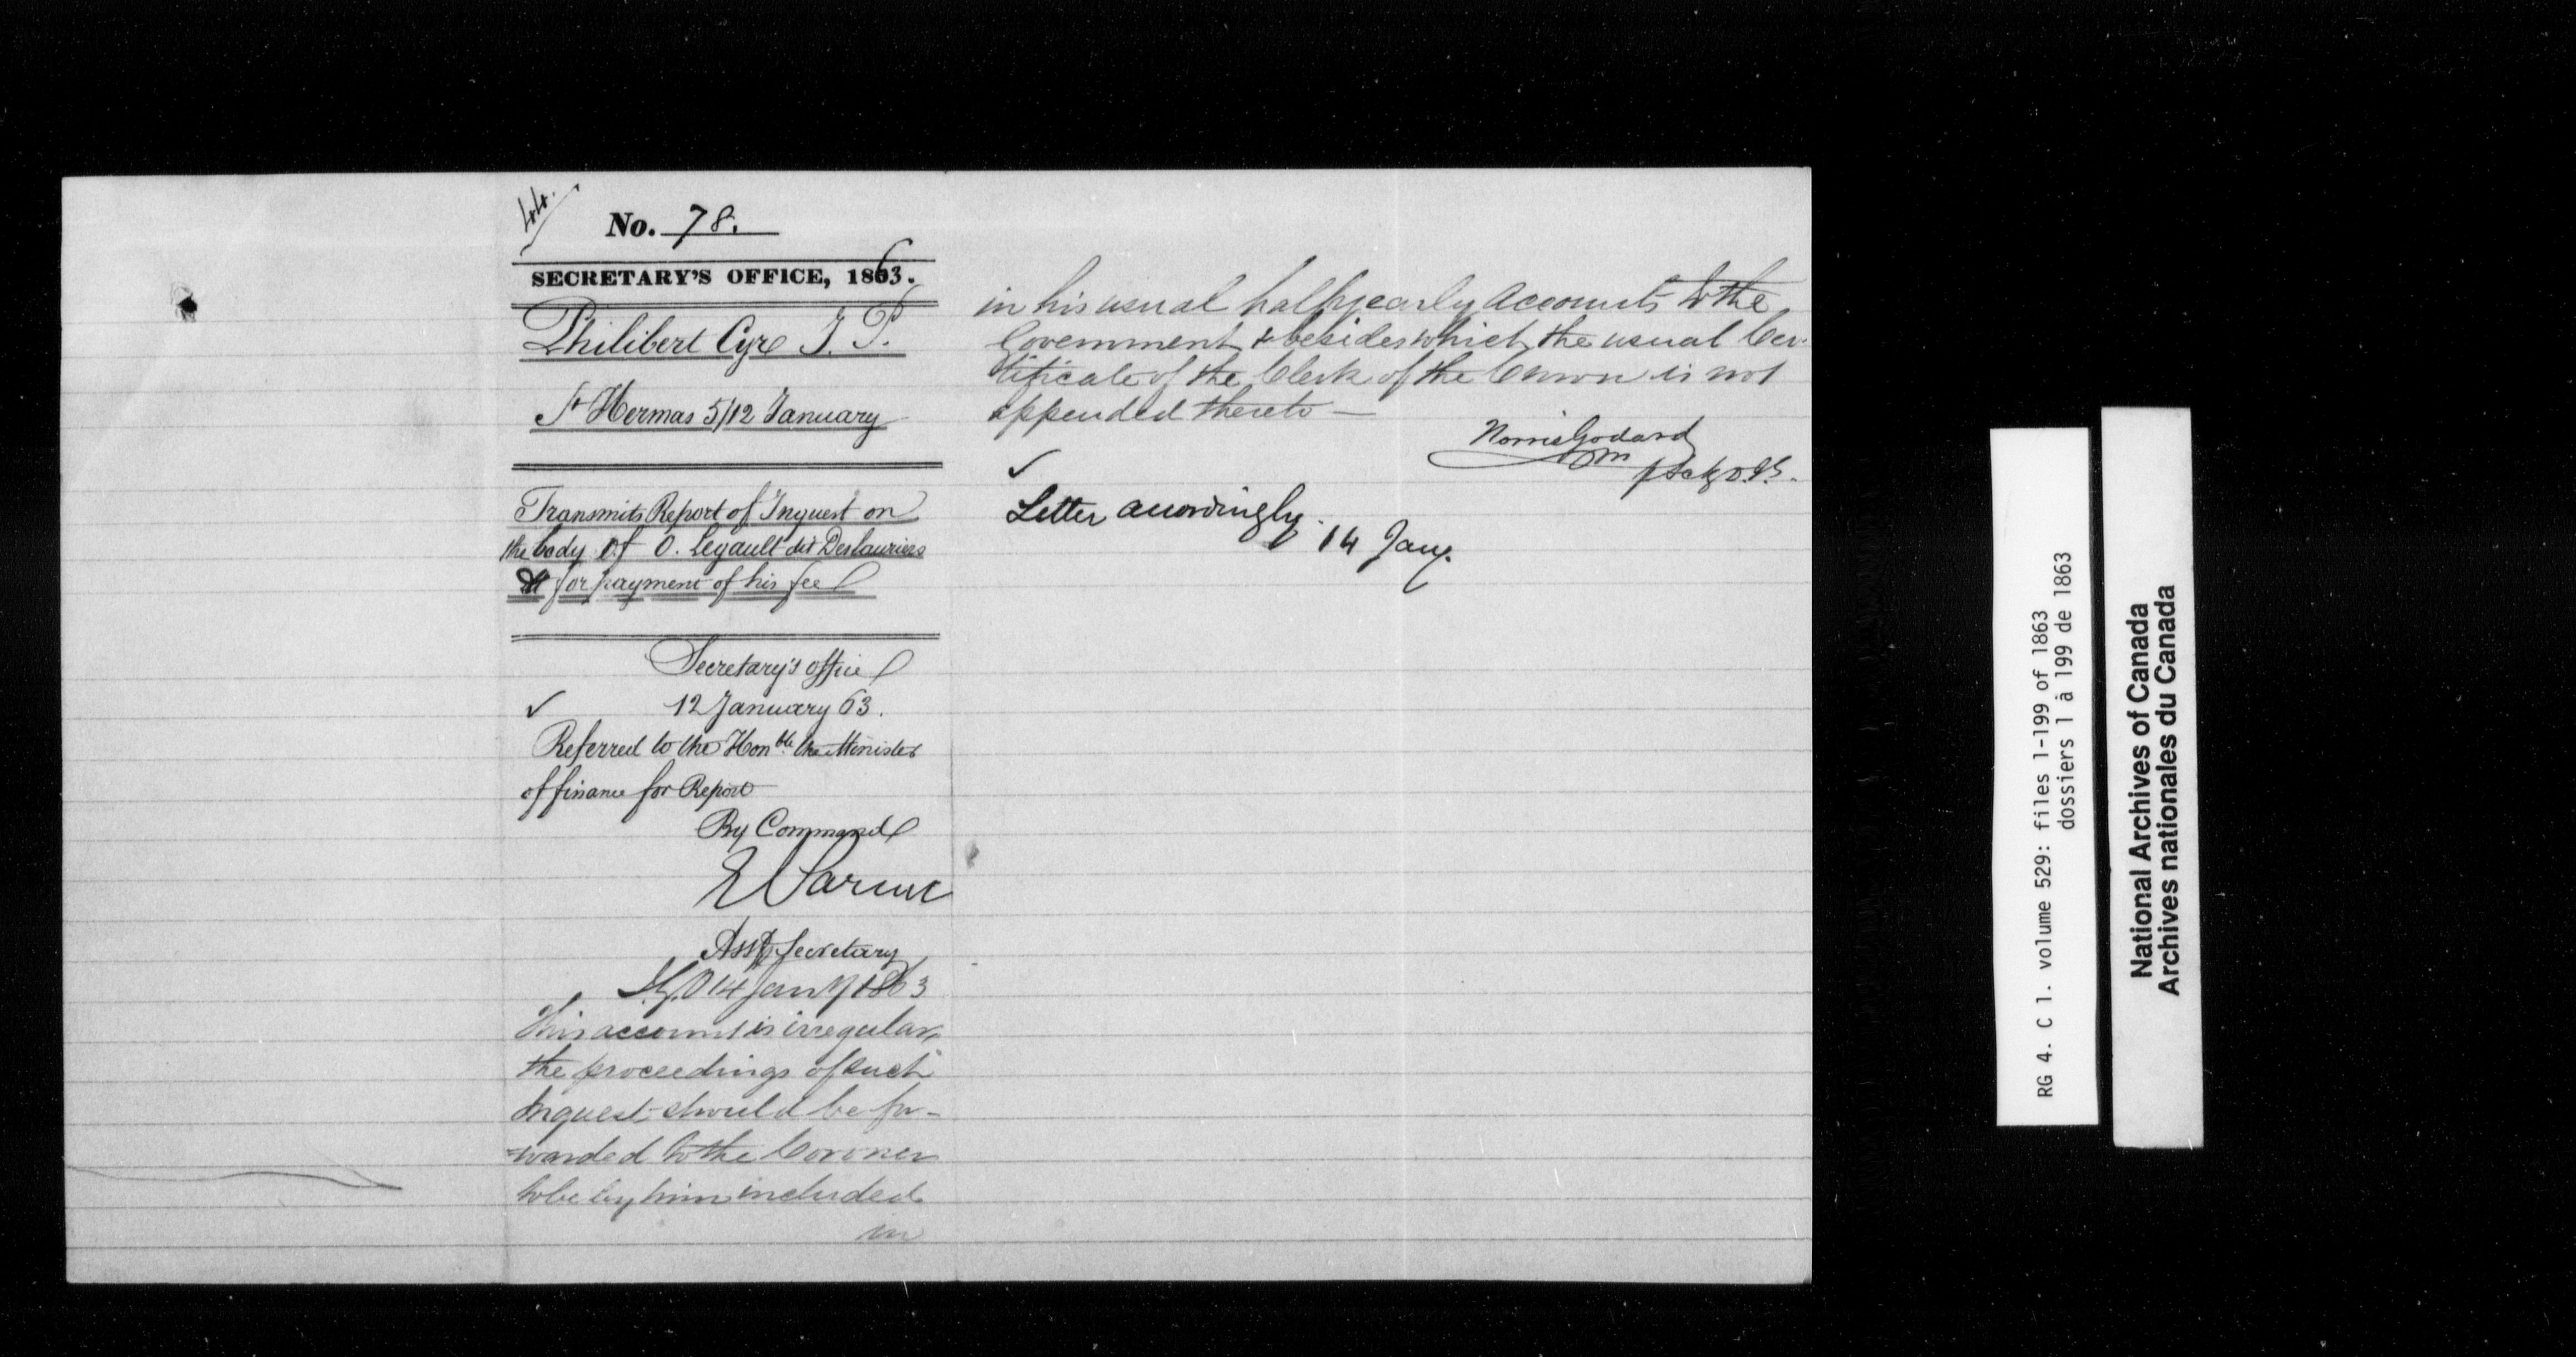 44.
No. 78.
SECRETARY'S OFFICE, 1863.
Philibert Cyre J. P.
St Hermas 5/12 January
Transmits Report of Inquest on
the body of O. Legault dit Deslauriers
& for payment of his fee
Secretary's office
✓ 12 January 63.
Referred to the Honble the Minister
of finance for Report
By Command
E Parent
Asst Secretary
14 Jany 1863
This account is irregular,
the proceedings of such
Inquest should be for-
-warded to the Coroner
to be by him included
in
in his usual half yearly Accounts to the
Government & besides which, the usual Cer-
tificate of the Clerk of the Crown is not
appended thereto —
Norris Godard
✓
Letter accordingly.
14 Jany.
RG 4. C 1. volume 529: files 1-199 of 1863
dossiers 1 à 199 de 1863
National Archives of Canada
Archives nationales du Canada